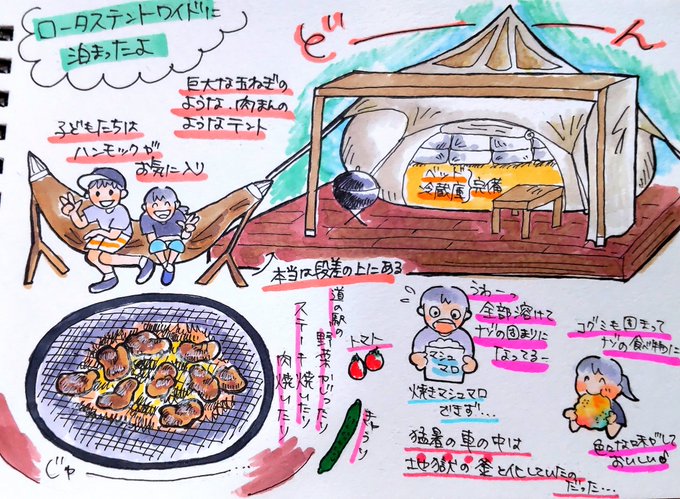 ロータステントワイドに
泊まったよ
どーん
巨大な玉ねぎの
ような、肉まんの
ようなテント
子どもたちは
ハンモックが
お気に入り
ベッド
冷蔵庫 完備
本当は段差の上にある
道の駅の
野菜かったり
ステーキ焼いたり
肉焼いたり
トマト
きゅうり
じゅー
うわーっ
全部溶けて
ナゾの固まりに
なってるー
マシュ
マロ
焼きマシュマロ
できず…
コグミも固まって
ナゾの食べ物に
色んな味がして
おいしい♪
猛暑の車の中は
地獄の釜と化していたの
だった…